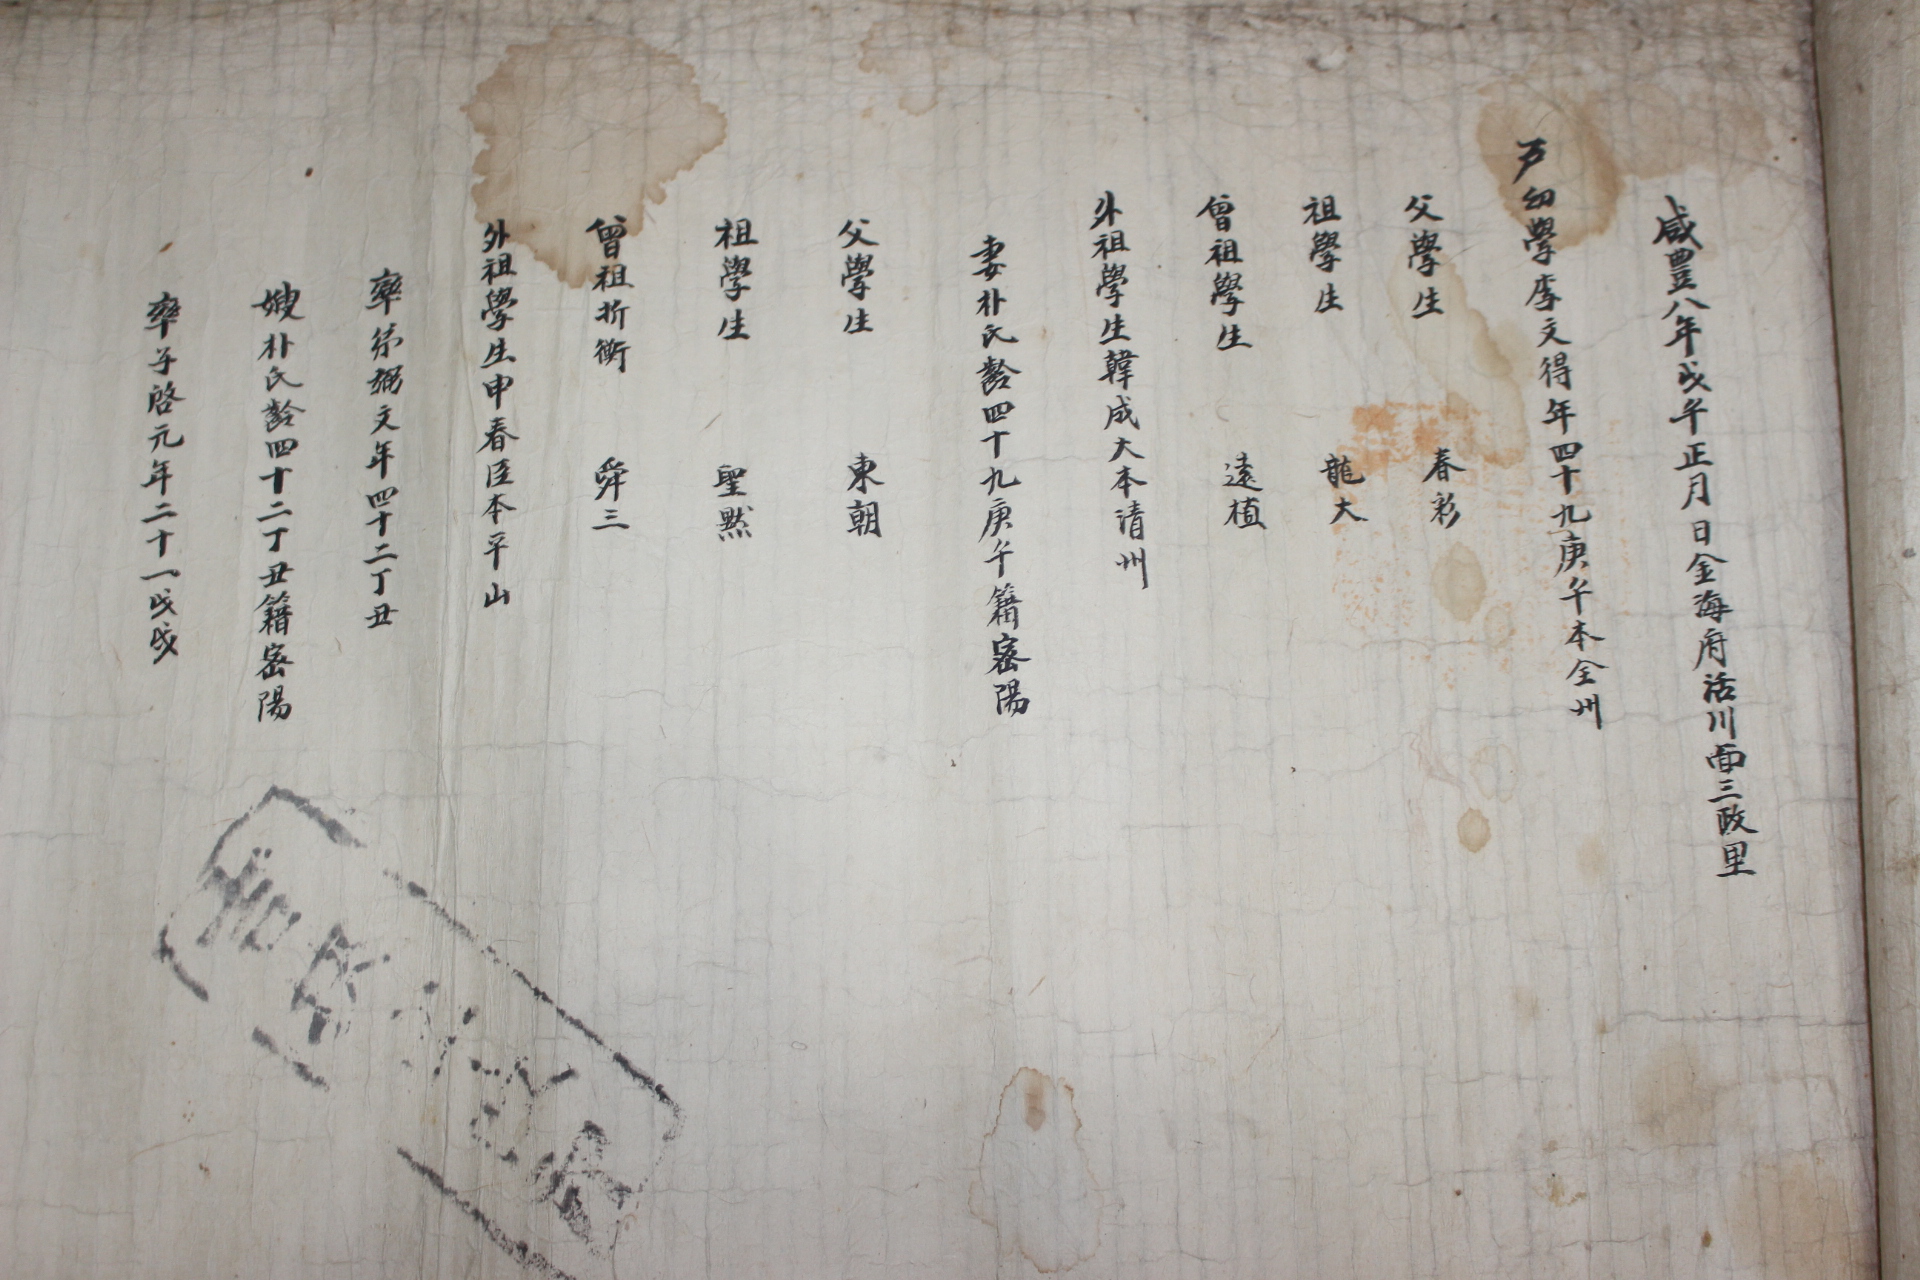 咸豊八年戊午正月日金海府活川面三政里
戸幼學李文得年四十九庚午本全州
父學生 春彩
祖學生 龍大
曾祖學生 遠植
外祖學生韓成大本清州
妻朴氏齡四十九庚午籍密陽
父學生 東朝
祖學生 聖默
曾祖折衝 舜三
外祖學生申春臣本平山
率弟弼文年四十二丁丑
嫂朴氏齡四十二丁丑籍密陽
率子啓元年二十一戊戌